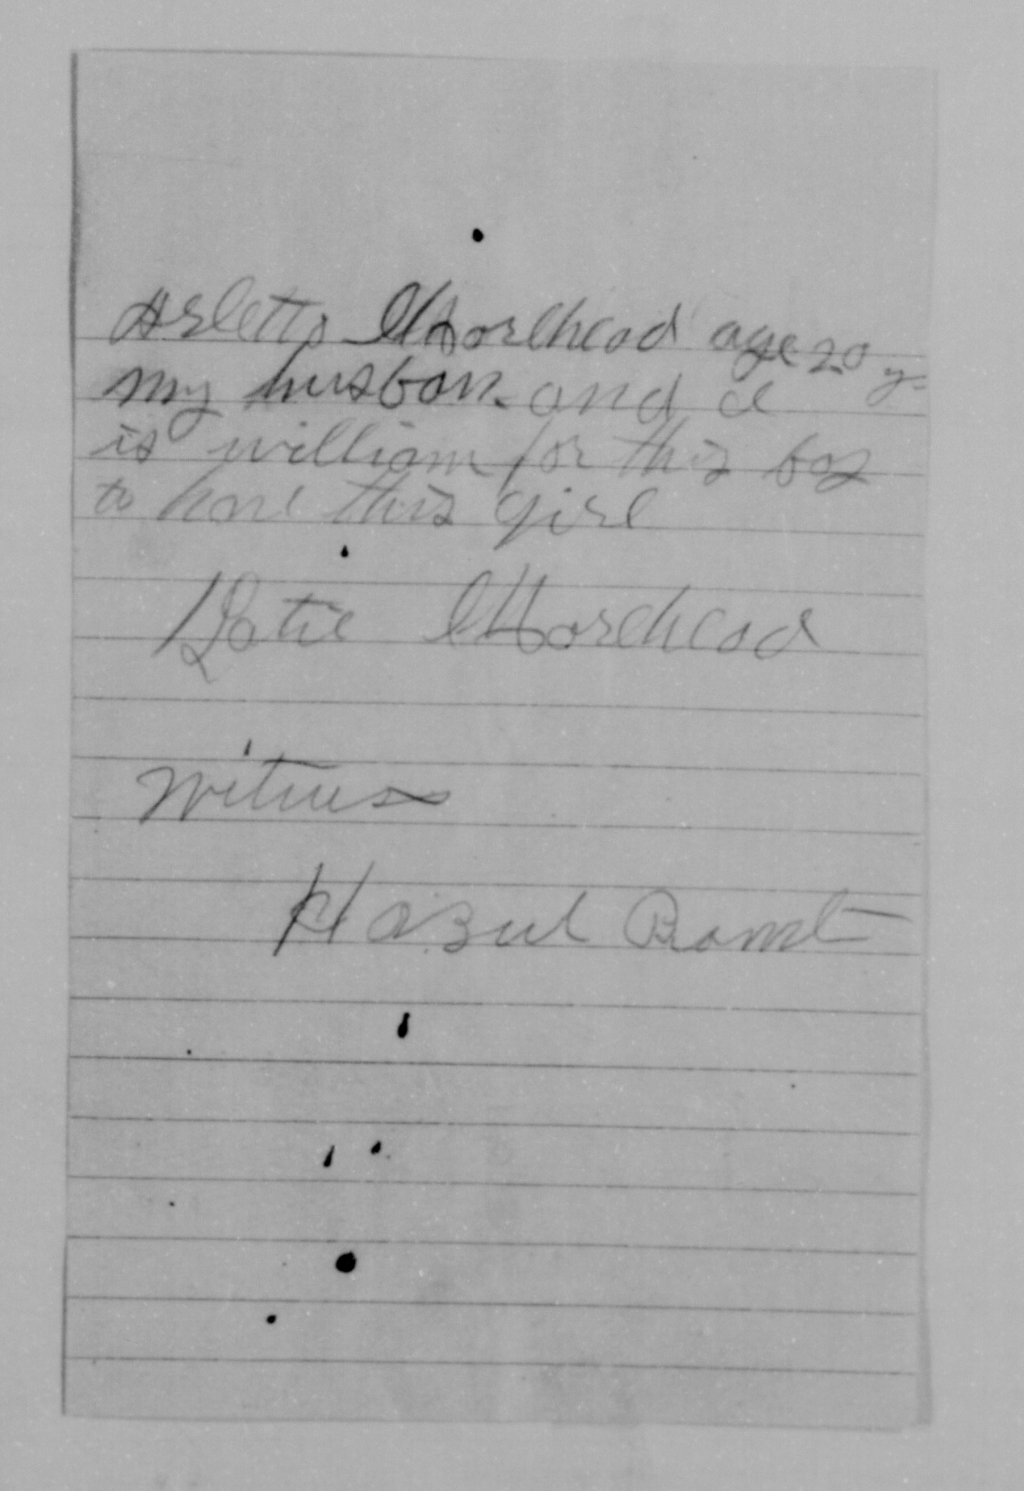 Arletta Morehead age 20 y
my husban and I
is william for this boy
to have this girl
Katie Morehead
Witness
Hazel